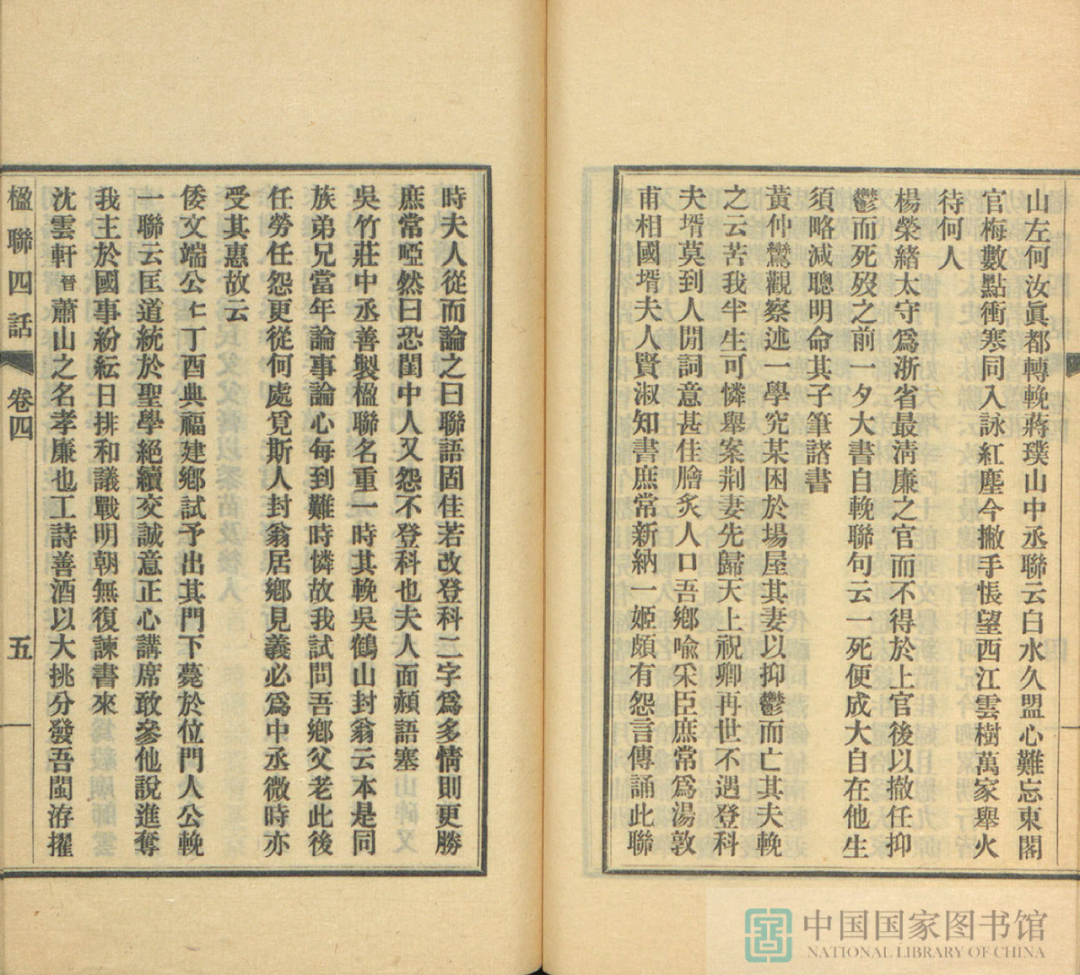 山左何汝眞都轉輓蔣璞山中丞聯云白水久盟心難忘東閣
官梅數點衝寒同入詠紅塵今撇手悵望西江雲樹萬家舉火
待何人
楊榮緒太守爲浙省最淸廉之官而不得於上官後以撤任抑
鬱而死歿之前一夕大書自輓聯句云一死便成大自在他生
須略減聰明命其子筆諸書
黃仲鸞觀察述一學究某困於場屋其妻以抑鬱而亡其夫輓
之云苦我半生可憐舉案荆妻先歸天上祝卿再世不遇登科
夫壻莫到人閒詞意甚佳膾炙人口吾鄉喩采臣庶常爲湯敦
甫相國壻夫人賢淑知書庶常新納一姬頗有怨言傳誦此聯
時夫人從而論之曰聯語固佳若改登科二字爲多情則更勝
庶常啞然曰恐閨中人又怨不登科也夫人面頳語塞
吳竹莊中丞善製楹聯名重一時其輓吳鶴山封翁云本是同
族弟兄當年論事論心每到難時憐故我試問吾鄉父老此後
任勞任怨更從何處覓斯人封翁居鄉見義必爲中丞微時亦
受其惠故云
倭文端公仁丁酉典福建鄉試予出其門下薨於位門人公輓
一聯云匡道統於聖學絕續交誠意正心講席敢參他說進奪
我主於國事紛紜日排和議戰明朝無復諫書來
沈雲軒晉蕭山之名孝廉也工詩善酒以大挑分發吾閩洊擢
楹聯四話 卷四 五
中国国家图书馆
NATIONAL LIBRARY OF CHINA